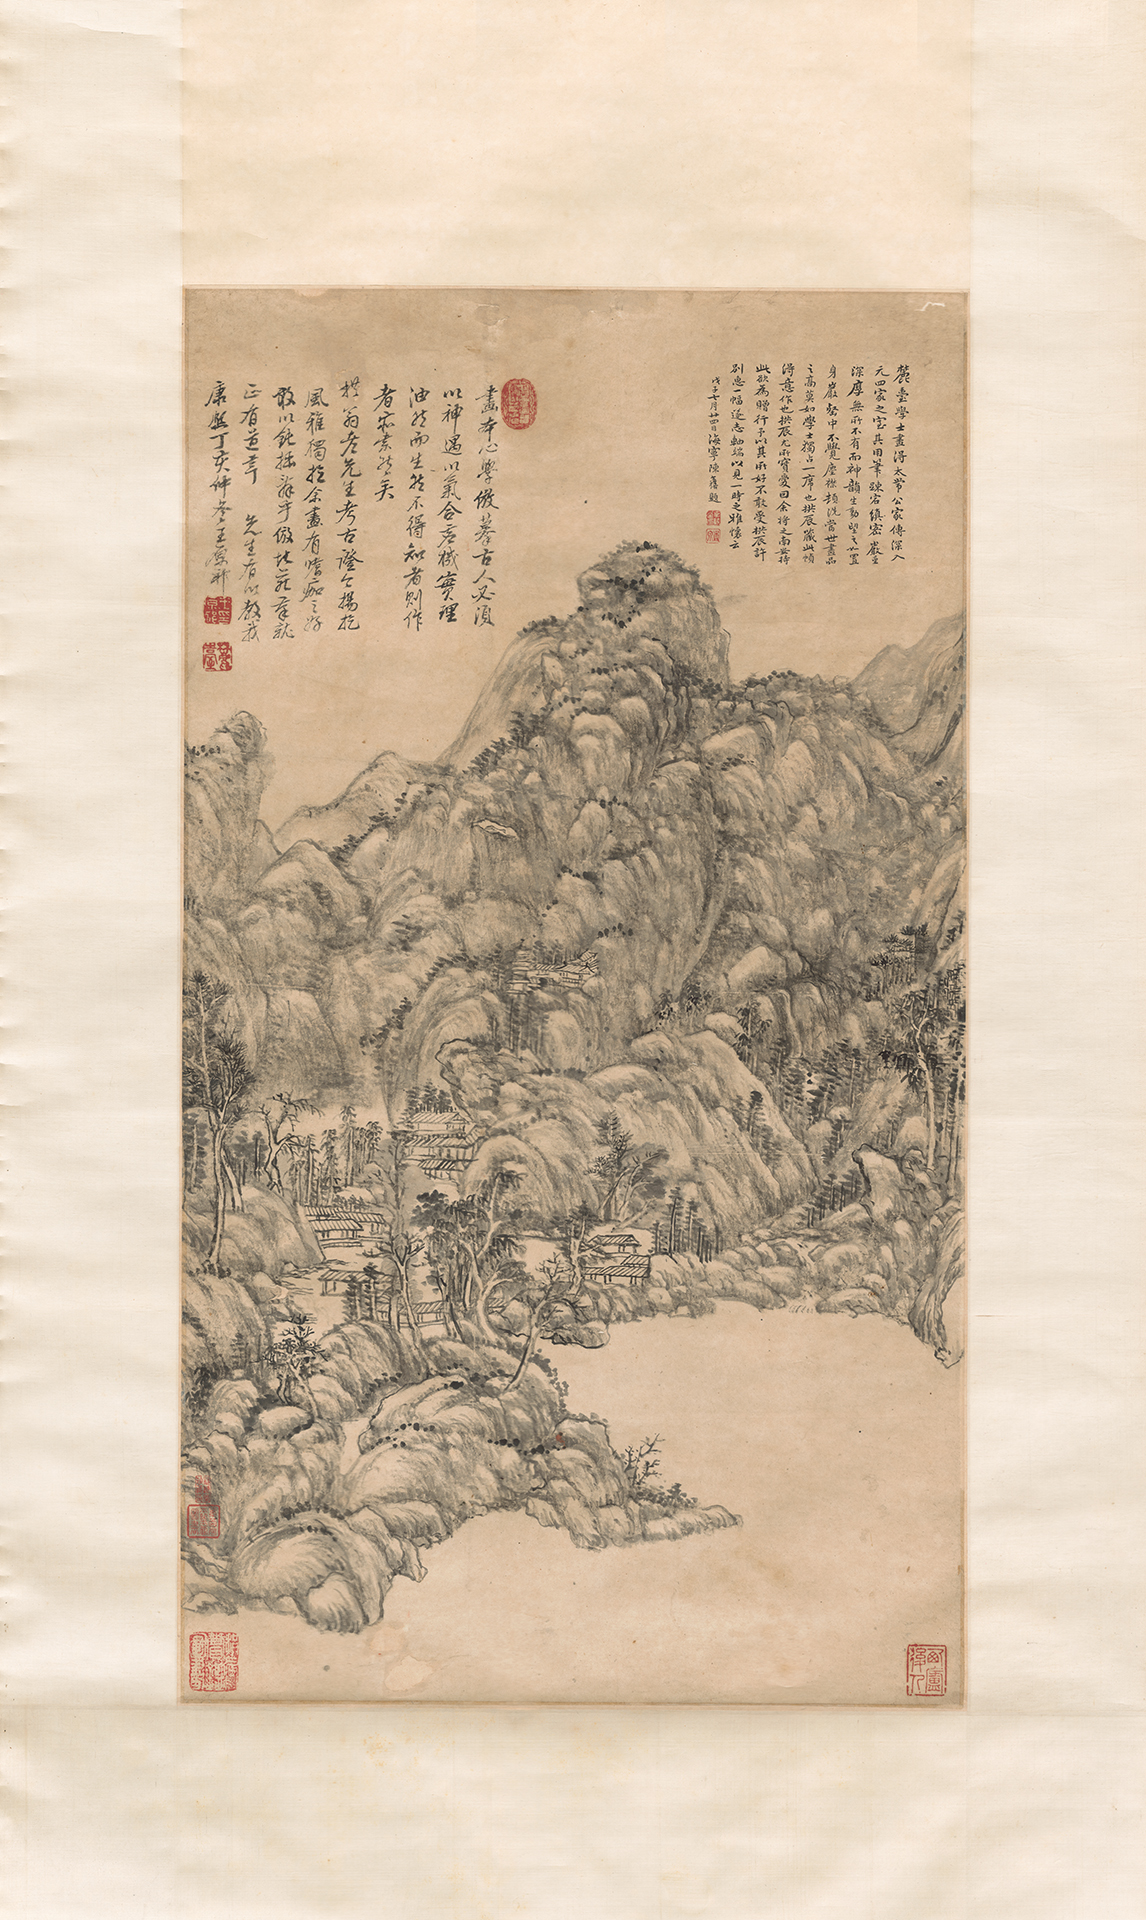 麓臺學士畫得太常公家傳深入
元四家之室其用筆踈宕縝密嚴重
深厚無所不有而神韻生動望之如置
身巖壑中不覺塵襟頓洗當世畫品
之高莫如學士獨占一席也拱辰藏此幀
得意作也拱辰尤所寶愛因余將之南無持
此欲為贈行予以其所好不敢受拱辰許
別惠一幅遂志軸端以見一時之雅懷云
戊子七月廿四日海寧陳 題
畫本心學倣摹古人必須
以神遇以氣合虛機實理
油然而生然不得知者則作
者亦索然矣
拱翁老先生考古證今揚扢
風雅獨於余畫有嗜痂之好
敢以鈍拙辭乎倣北苑筆就
正有道幸 先生有以教我
康熙丁亥仲冬王原祁